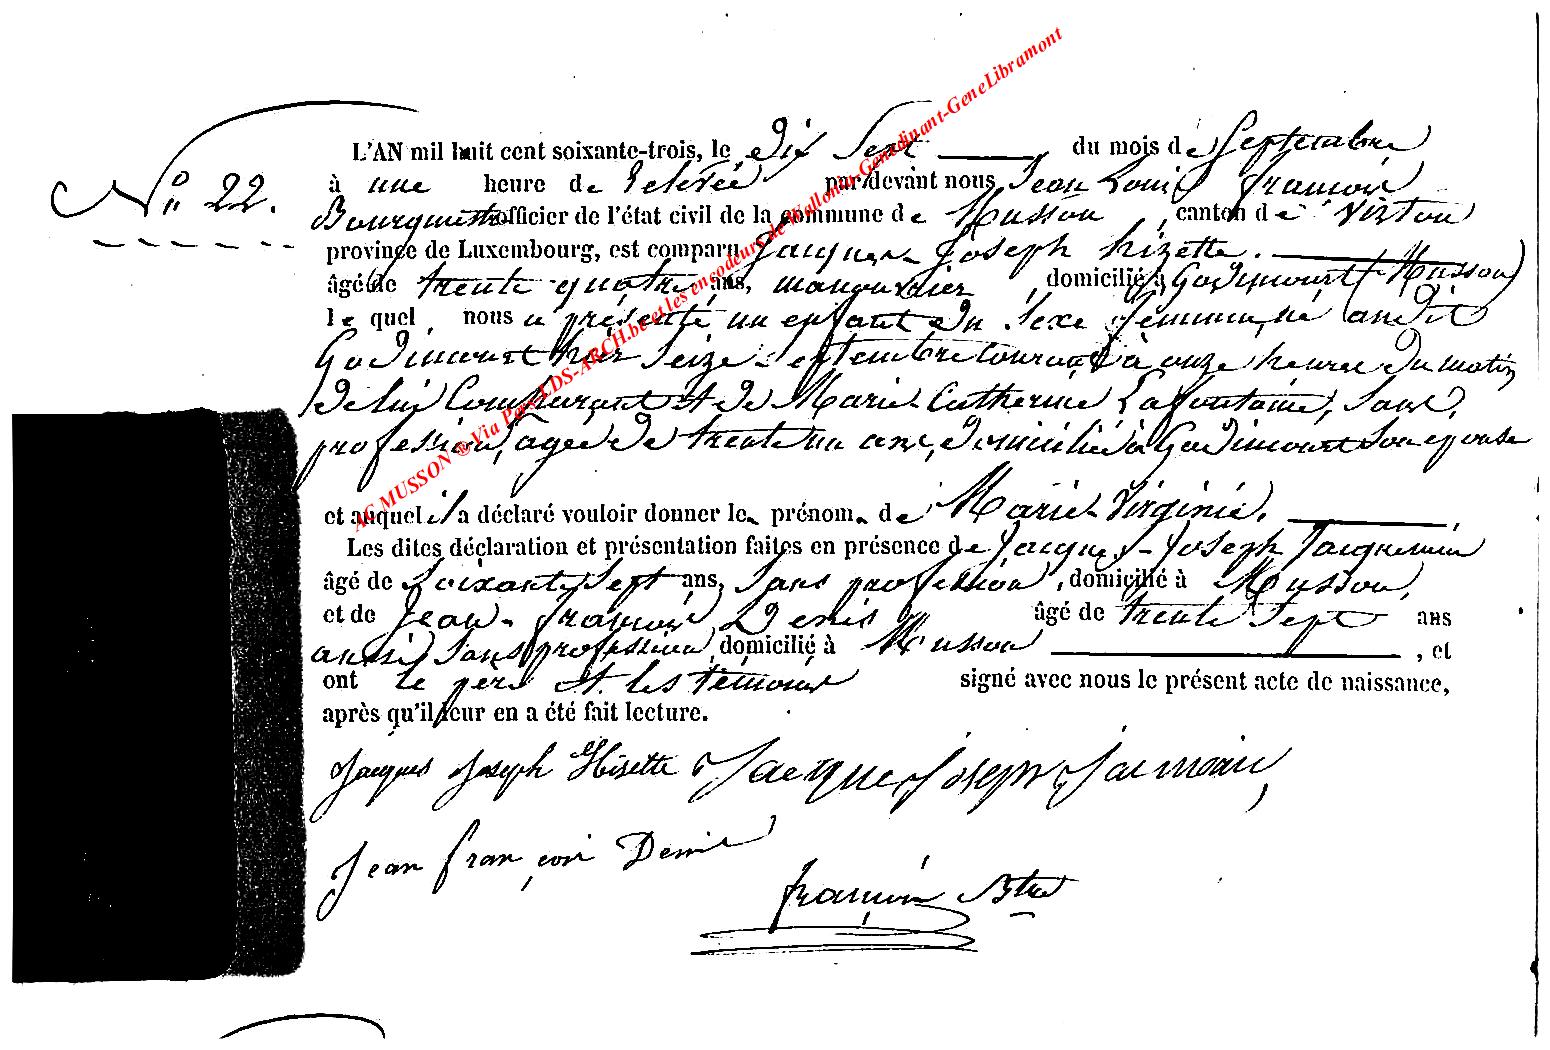 L'AN mil huit cent soixante-trois, le dix Sept du mois de Septembre
N° 22. à une heure de relevée par devant nous Jean Louis françois
Bourguignon officier de l'état civil de la commune de Musson, canton de Virton
province de Luxembourg, est comparu Jacques Joseph hizette.
âgé de trente quatre ans, manouvrier, domicilié à Godincourt (Musson)
le quel, nous a présenté un enfant du Sexe féminin, né au dit
Godincourt hier Seize Septembre courant à onze heures du matin
de lui Comparant et de Marie Catherine Lafontaine, Sans
profession, agée de trente un ans, domiciliée à Godincourt Son epouse
et auquel il a déclaré vouloir donner le prénom de Marie Virginie.
Les dites déclaration et présentation faites en présence de Jacques-Joseph Jacquemin
âgé de Soixante Sept ans, Sans profession, domicilié à Musson,
et de Jean-françois Denis âgé de trente Sept ans
aussi Sans profession, domicilié à Musson, et
ont le pere et les témoins signé avec nous le présent acte de naissance,
après qu'il leur en a été fait lecture.
Jacques Joseph Hisette Jacque Joseph Jacmain
Jean françois Denis
françois Btre
AC MUSSON @ Via Pers LDS-ARCH.be et les encodeurs de Wallonia-Genedinant-GeneLibramont